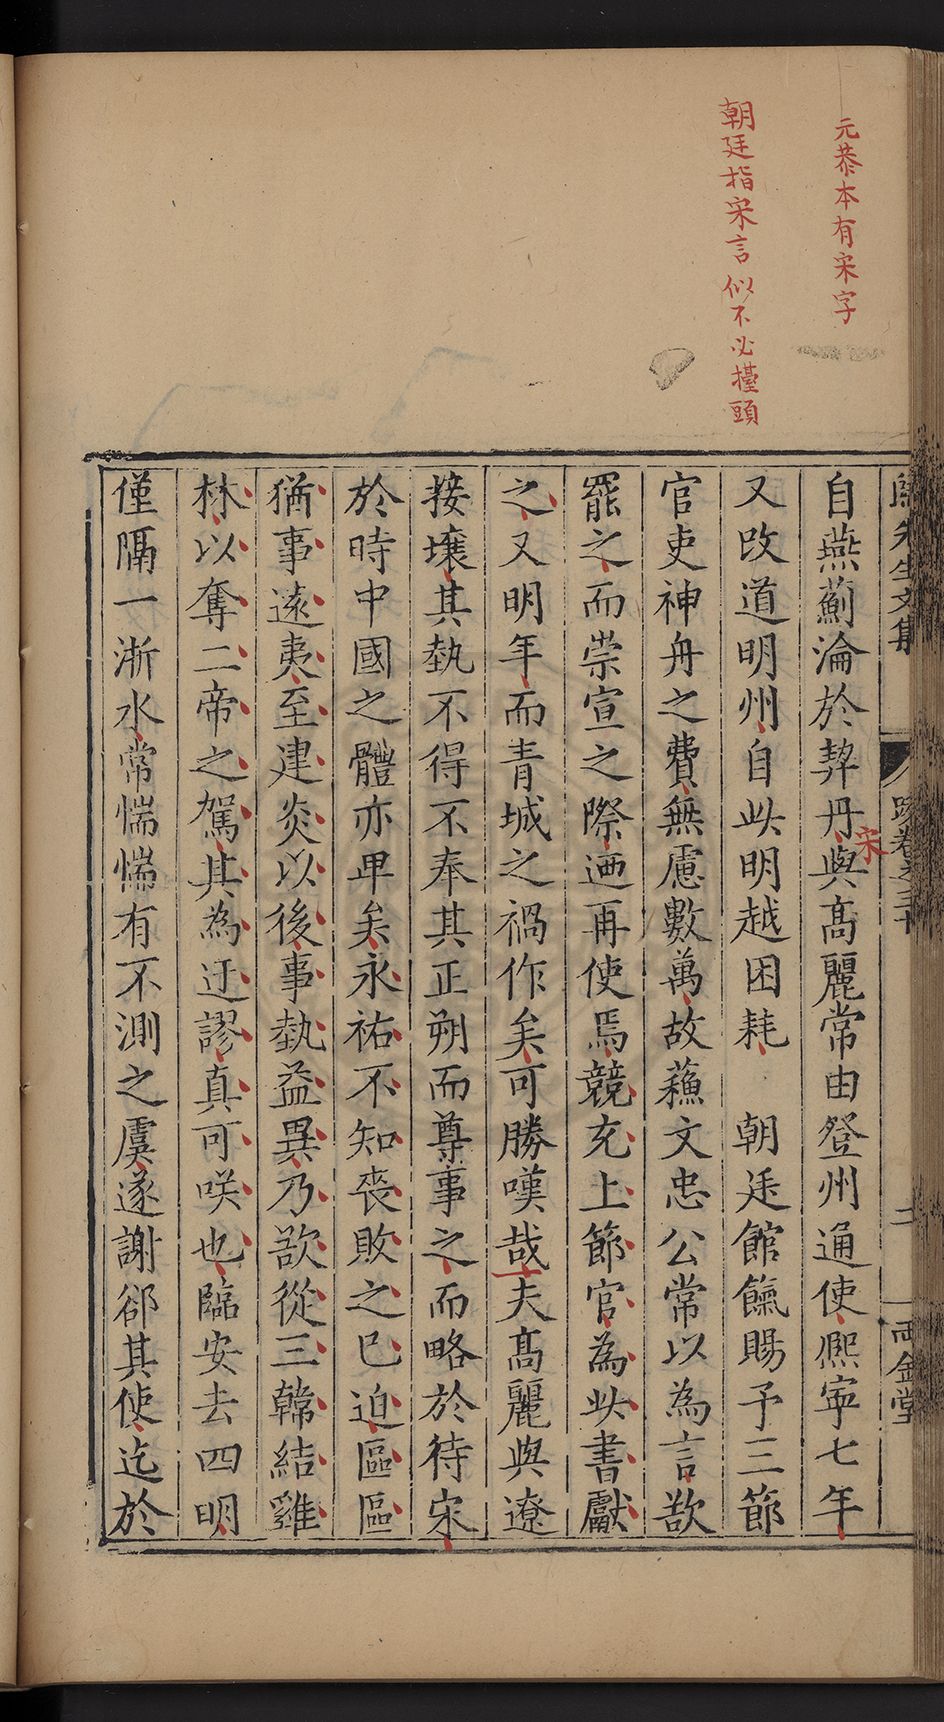 元恭本有宋字
朝廷指宋言似不必擡頭
自燕薊淪於契丹與髙麗常由登州通使熈寜七年
宋
又改道明州自此明越困耗　朝廷館餼賜予三節
官吏神舟之費無慮數萬故蘓文忠公常以為言欲
罷之而崇宣之際迺再使焉競充上節官為此書獻
之又明年而青城之禍作矣可勝嘆哉夫髙麗與遼
接壤其埶不得不奉其正朔而尊事之而略於待宋
於時中國之體亦卑矣永祐不知喪敗之已迫區區
猶事逺夷至建炎以後事埶益異乃欲從三韓結雞
林以奪二帝之駕其為迂謬真可咲也臨安去四明
僅隔一浙水常惴惴有不測之虞遂謝郤其使迄於
先生文集
跋卷之
二
兩金堂